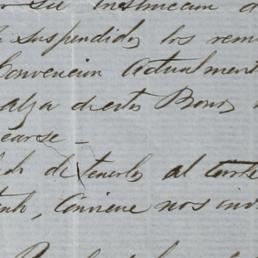 su instruccion d
suspendidos los rem
Convencion actualment
alza de estos Bonos
earse –
do de tenerlos al corr
nto, conviene nos in